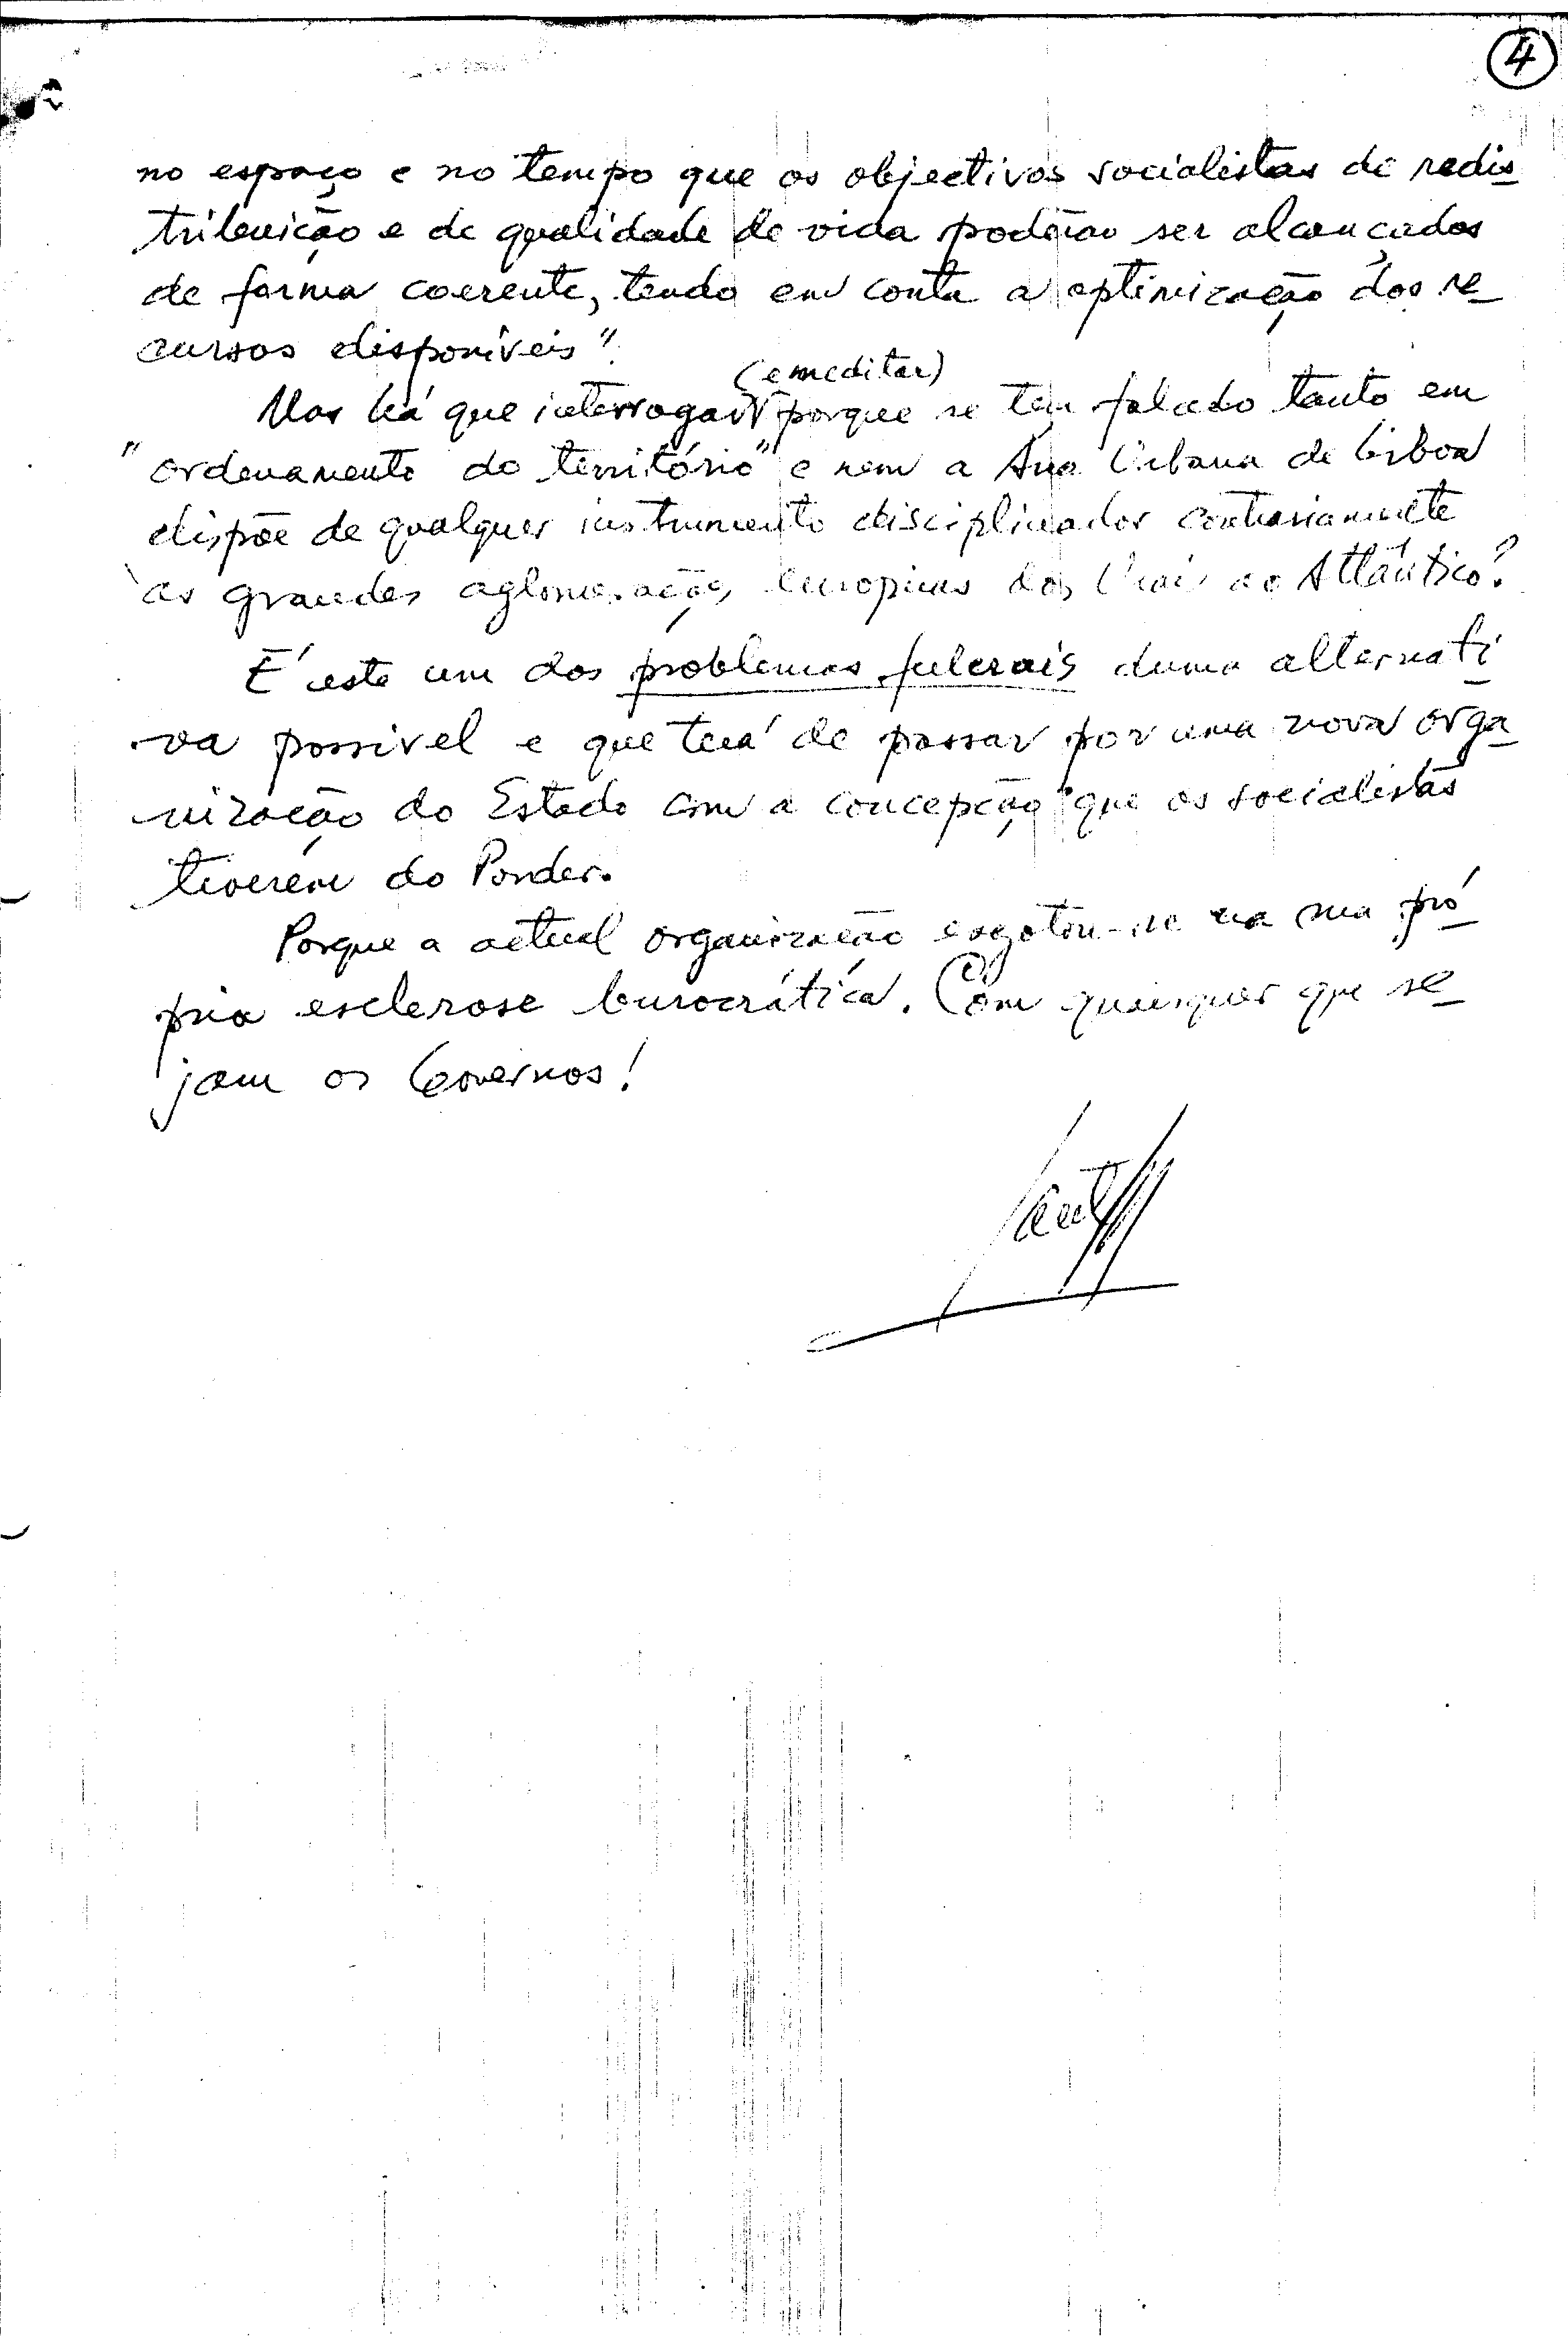 4
no espaço e no tempo que os objectivos socialistas de redis
tribuição e de qualidade de vida poderão ser alcançados
de forma coerente, tendo em conta a optimização dos re
cursos disponíveis".
(e meditar)
Mas há que interrogar porque se tem falado tanto em
"ordenamento do território" e nem a Área Urbana de Lisboa
dispõe de qualquer instrumento disciplinador contrariamente
às grandes aglomerações europeias dos Urais ao Atlântico?
É este um dos problemas fulcrais duma alternati
va possivel e que terá de passar por uma nova orga
nização do Estado com a concepção que os socialistas
tiverem do Ponder.
Porque a actual organização esgotou-se na sua pró
pria esclerose burocrática. Com quaisquer que se
jam os Governos!